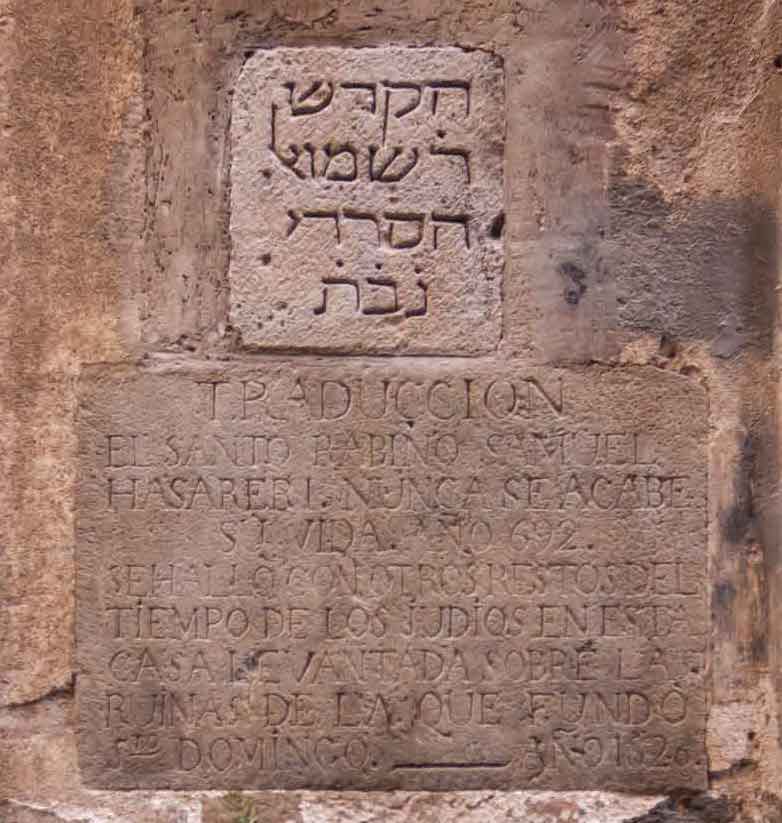 הקדש
ר׳ שמוﭏ
הסרדי
נ̇ב̇ת̇
TRADUCCION
EL SANTO RABINO SAMUEL
HASARERI. NUNCA SE ACABE
SU VIDA. AÑO 692.
SE HALLO CON OTROS RESTOS DEL
TIEMPO DE LOS JUDIOS EN ESTA
CASA LEVANTADA SOBRE LAS
RUINAS DE LA QUE FUNDO
Sto DOMINGO. AÑO